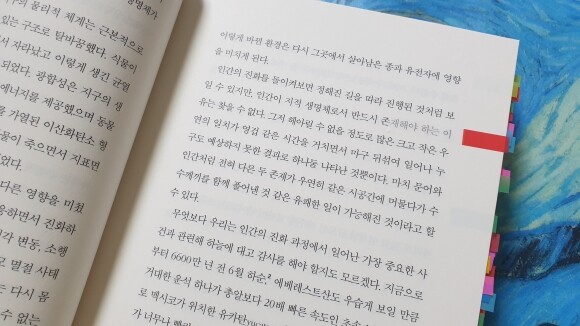 생명체가
의 물리적 체계는 근본적으로
있는 구조로 탈바꿈했다. 식물이
서 자라났고 이렇게 생긴 균열
되었다. 광합성은 지구의 생
에너지를 제공했으며 동물
를 가열된 이산화탄소 형
물이 죽으면서 지표면
었다.
다른 영향을 미쳤
응하면서 진화하
각 변동, 소행
로 멸절 사태
는 다시 몸
수 없는
이렇게 바뀐 환경은 다시 그곳에서 살아남은 종과 유전자에 영향
을 미치게 된다.
인간의 진화를 돌이켜보면 정해진 길을 따라 진행된 것처럼 보
일 수 있지만, 인간이 지적 생명체로서 반드시 존재해야 하는 이
유는 찾을 수 없다. 그저 헤아릴 수 없을 정도로 많은 크고 작은 우
연의 일치가 영겁 같은 시간을 거치면서 마구 뒤섞여 일어나 누
구도 예상하지 못한 결과로 하나둘 나타난 것뿐이다. 마치 문어와
인간처럼 전혀 다른 두 존재가 우연히 같은 시공간에 머물다가 수
수께끼를 함께 풀어낸 것 같은 유쾌한 일이 가능해진 것이라고 할
수 있다.
무엇보다 우리는 인간의 진화 과정에서 일어난 가장 중요한 사
건과 관련해 하늘에 대고 감사를 해야 할지도 모르겠다. 지금으로
부터 6600만 년 전 6월 하순,² 에베레스트산도 우습게 보일 만큼
거대한 운석 하나가 총알보다 20배 빠른 속도인 초속
로 멕시코가 위치한 유카탄
가 너무나